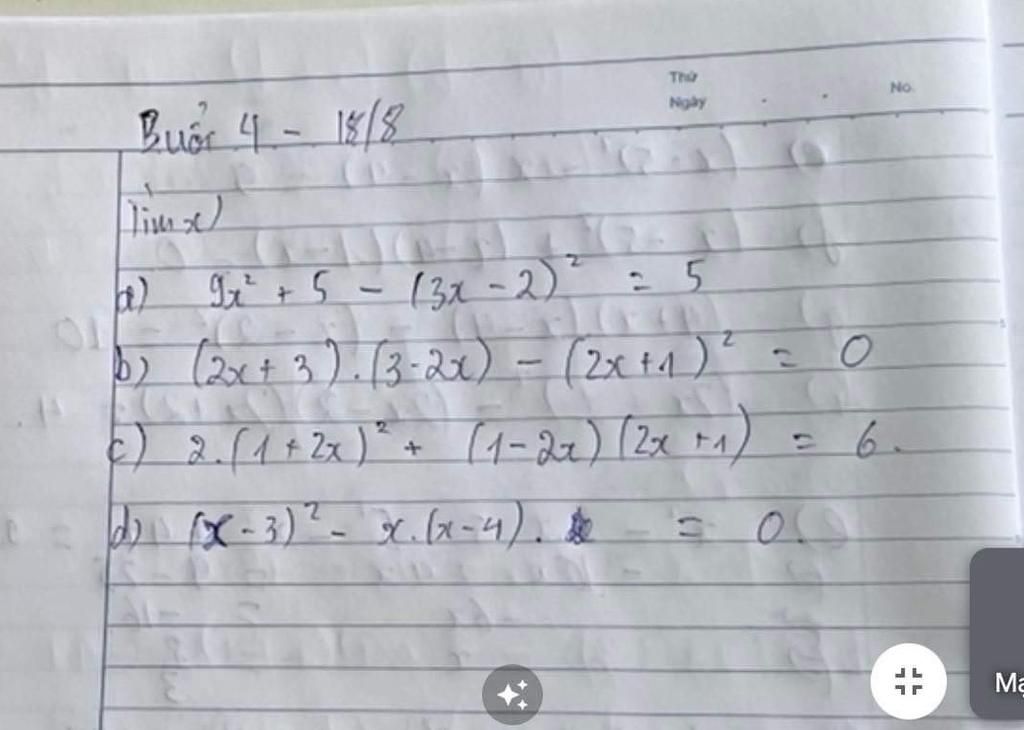 Thứ
Ngày
No.
Buổi 4 - 18/8
Tìm x)
a) 9x² + 5 - (3x - 2)² = 5
b) (2x + 3).(3-2x) - (2x+1)² = 0
c) 2.(1+2x)² + (1-2x)(2x+1) = 6.
d) (x-3)² - x.(x-4). = 0.